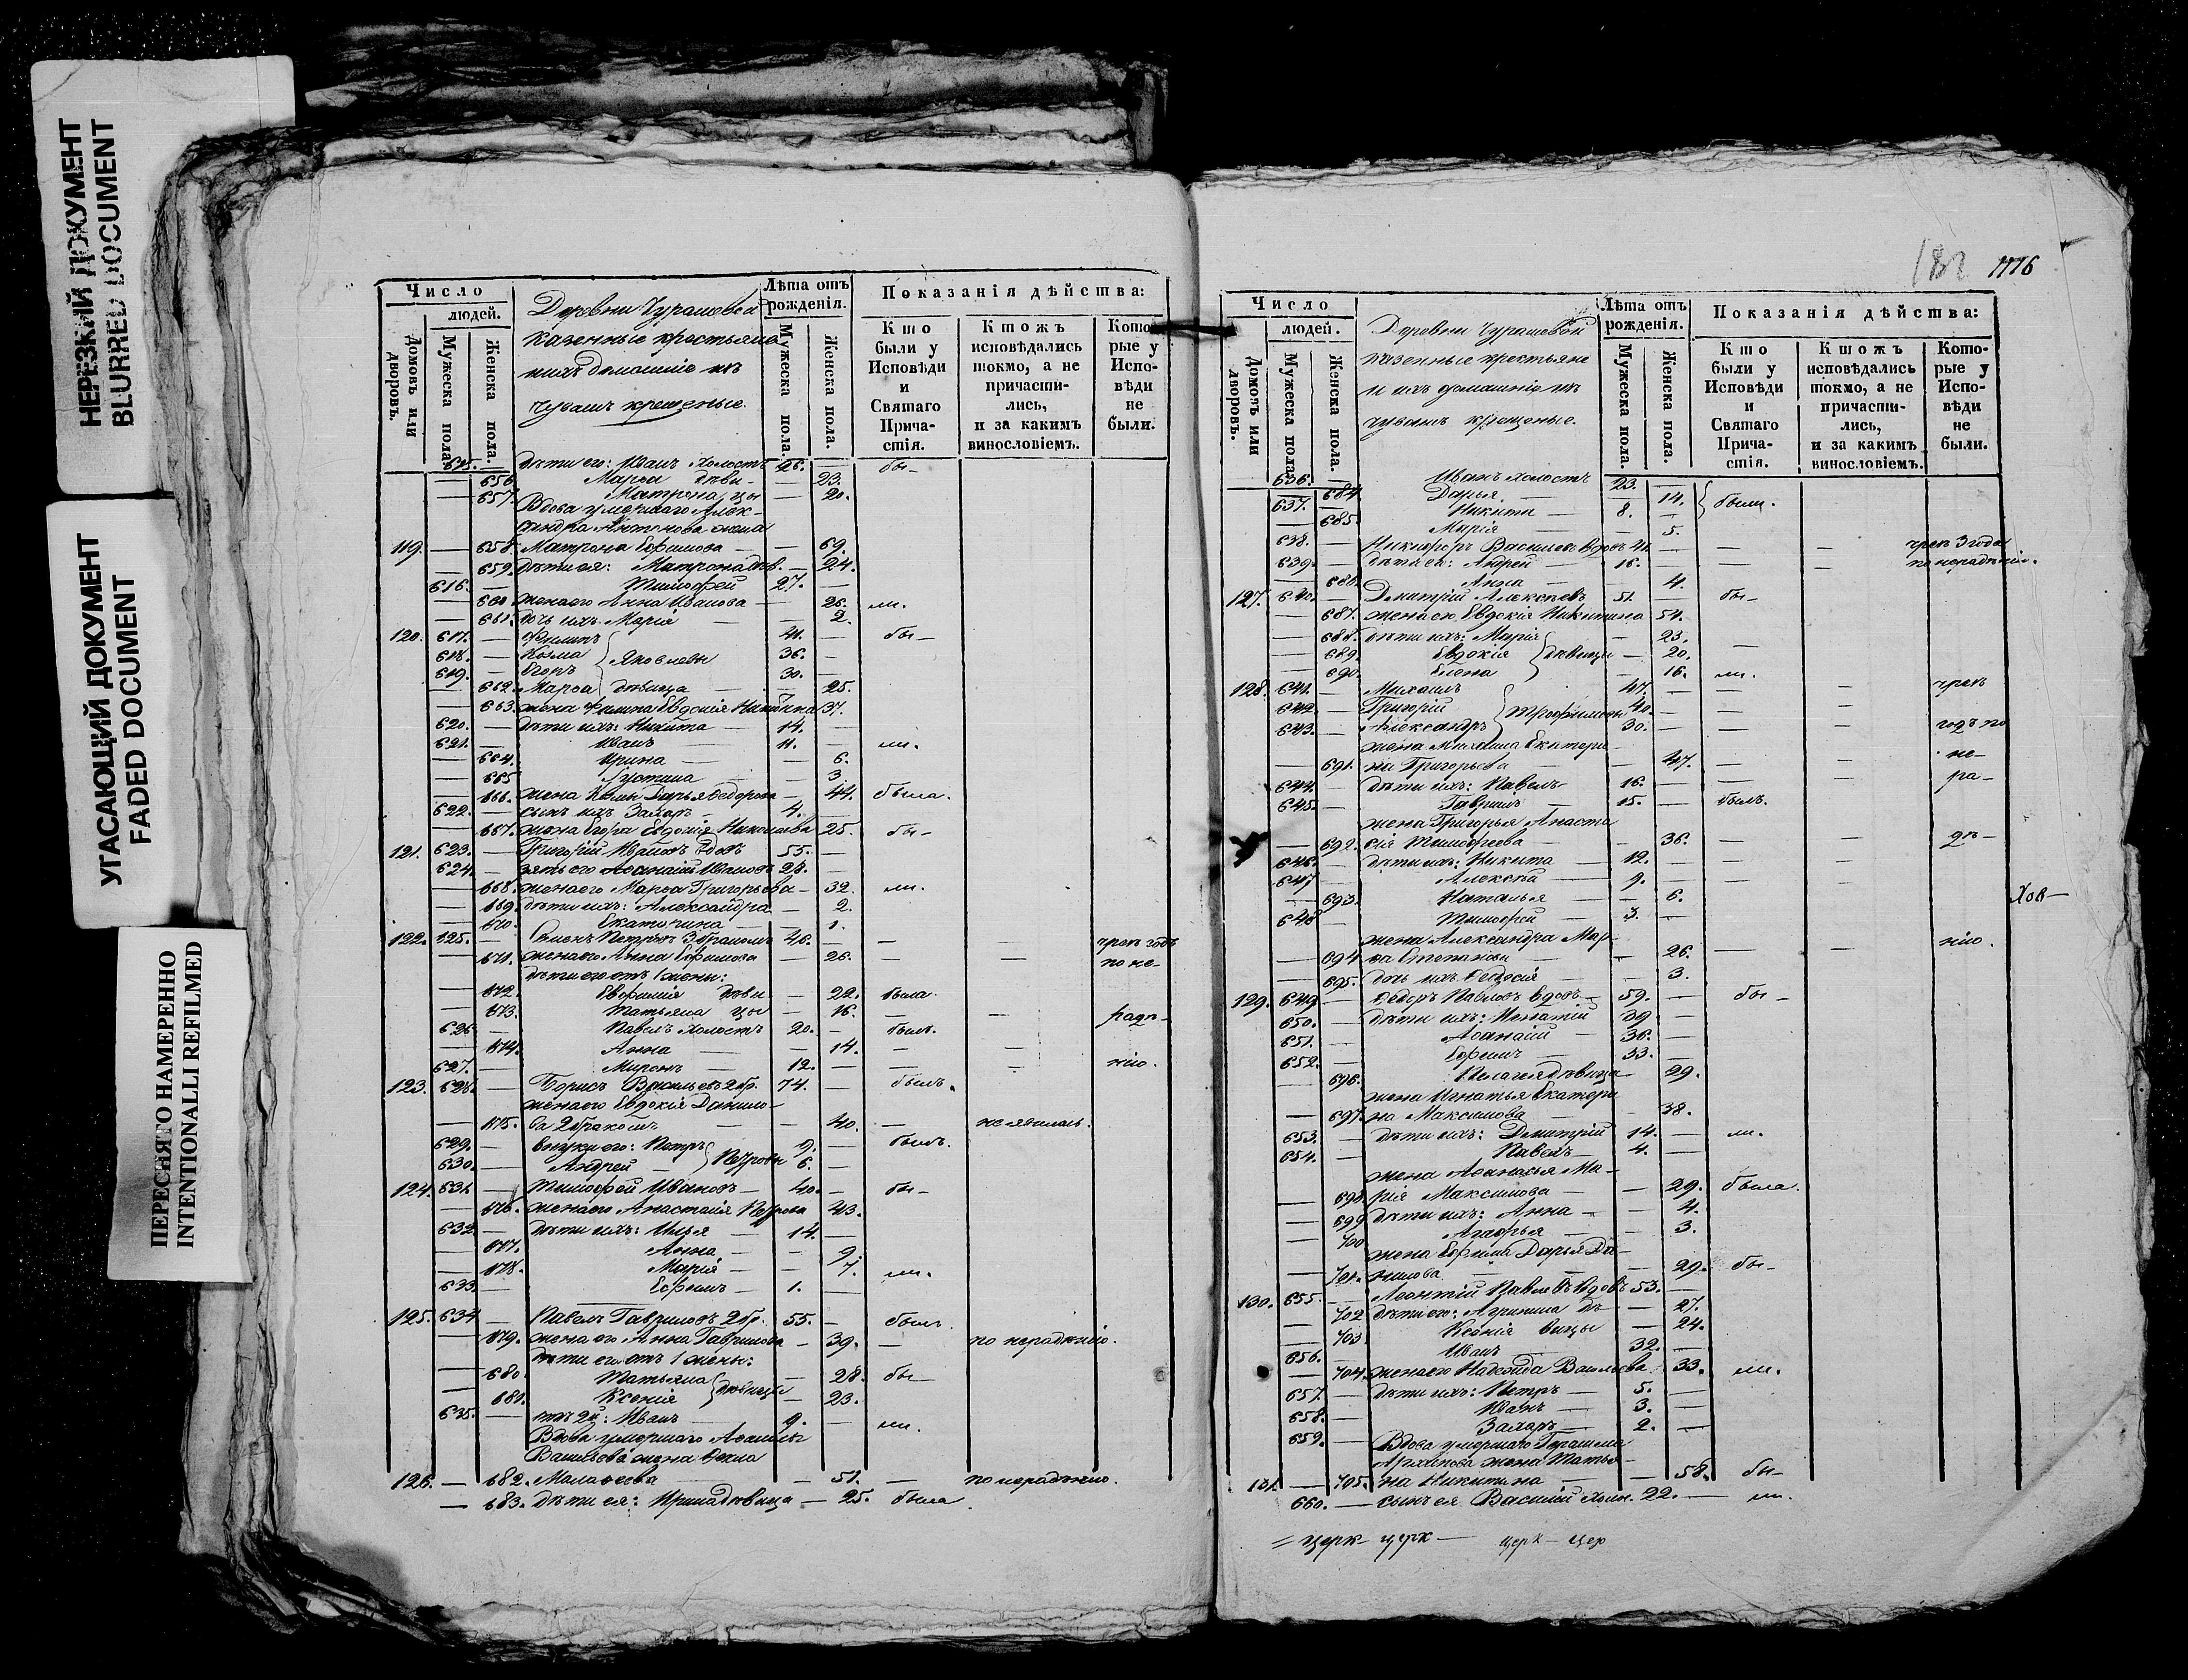 НЕРЕЗКИЙ ДОКУМЕНТ
BLURRED DOCUMENT
УГАСАЮЩИЙ ДОКУМЕНТ
FADED DOCUMENT
ПЕРЕСНЯТО НАМЕРЕННО
INTENTIONALLI REFILMED
Число
людей.
Домовъ или дворовъ.
Мужеска пола.
Женска пола.
Деревни Чурашовой
казенные крестьяне
и ихъ домашніе изъ
чувашъ крещеные.
Лѣта отъ рожденія.
Мужеска пола.
Женска пола.
Показанія дѣйства:
Кто были у Исповѣди и Святаго Причастія.
Ктожъ исповѣдались токмо, а не причастились, и за какимъ винословіемъ.
Которые у Исповѣди не были.
615. — дѣти его: Иванъ холостъ 26. — бы-
— 656. Марѳа дѣви- — 23.
— 657. Матрона цы — 20.
Вдова умершаго Алек-
сандра Антонова жена
119. — 658. Матрона Ефимова — — 69.
— 659. дѣти ея: Матрона дѣв. — 24.
616. Тимофей 27. —
— 660 жена его Анна Иванова — 26. ли.
— 661. дочь ихъ Марія — — 2.
120. 617. — Филипъ 41. — бы-
618. — Козма Яковлевы 36. —
619. — Егоръ 30. —
— 662. Марѳа дѣвица — 25.
— 663. жена Филипа Евдокія Никитина 37.
620. — дѣти ихъ: Никита — 14. —
621. — Иванъ — 11. — ли.
— 664. Ирина — — 6.
— 665 Густина — 3.
— 666. жена Козмы Дарья Ѳедорова — 44. была.
622. — сынъ ихъ Захаръ — 4. —
— 667. жена Егора Евдокія Николаева 25. бы-
121. 623. — Григорій Ивановъ вдовъ 55. —
624. зять его Аѳанасій Ивановъ 28. —
— 668. жена его Марѳа Григорьева — 32. ли.
— 669. дѣти ихъ: Александра — 2.
— 670. Екатерина — — 1.
122. 625. — Семенъ Петровъ 3 бракомъ 46. — — — чрезъ годъ
— 671. жена его Анна Ефимова — 26. — — по не-
дѣти его отъ 1 жены:
— 672. Евфимія дѣви — 22. была.
— 673. Татьяна цы — 16. — — радѣ-
626 — Павелъ холостъ 20. — былъ.
— 674. Анна — — 14. — —
627. — Миронъ — 12. — — — нію.
123. 628. — Борисъ Васильевъ 2 бр. 74. — былъ.
жена его Евдокія Данило-
— 675. ва 2 бракомъ — — 40. — не явилась.
629. — внуки его: Петръ 9. — былъ.
630. — Андрей — Петровы 6. —
124. 631. — Тимофей Ивановъ — 40. — бы-
— 676. жена его Анастасія Петрова 43.
632. — дѣти ихъ: Илья — 14. —
— 677. Анна — — 9.
— 678. Марія — — 7. ли.
633. — Ефимъ — 1. —
125. 634 — Павелъ Гавриловъ 2 бр. 55. — былъ.
— 679. жена его Анна Гаврилова — 39. — по нерадѣнію.
дѣти его отъ 1 жены:
— 680. Татьяна — 28. бы-
— 681. Ксенія дѣвицы — 23.
635. — отъ 2й: Иванъ 9. — ли.
Вдова умершаго
Васильева жена
126. — 682. Малаѳеева — 51. — по нерадѣнію.
— 683. дѣти ея: Ирина дѣвица — 25. была.
182 1116
Число
людей.
Домовъ или дворовъ.
Мужеска пола.
Женска пола.
Деревни Чурашовой
казенные крестьяне
и ихъ домашніе изъ
чувашъ крещеные.
Лѣта отъ рожденія.
Мужеска пола.
Женска пола.
Показанія дѣйства:
Кто были у Исповѣди и Святаго Причастія.
Ктожъ исповѣдались токмо, а не причастились, и за какимъ винословіемъ.
Которые у Исповѣди не были.
636. — Иванъ холостъ 23. —
— 684 Дарья — — 14. были.
637. — Никита — 8. —
— 685. Марія — — 5.
638. — Никифоръ Васильевъ вдовъ 41. — — — чрезъ 3 года
639. — дѣти его: Андрей — 16. — — — по нерадѣнію.
— 686. Анна — — 4.
127. 640. — Димитрій Алексѣевъ 51. — бы-
— 687. жена его Евдокія Никитина 54.
— 688. дѣти ихъ: Марія — 23.
— 689. Евдокія дѣвицы — 20. —
— 690. Елена — 16. ли.
128. 641. — Михаилъ 47. — — — чрезъ
642. — Григорій Трофимовы 40. — — —
643. — Александръ 30. — — — годъ по
жена Михаила Екатери-
— 691. на Григорьева — — 47. — — не-
644. — дѣти ихъ: Павелъ 16. — — — ра-
645. — Гавриилъ — 15. — былъ.
жена Григорья Анаста
— 692. сія Тимофеева — — 36. — — дѣ-
646. — дѣти ихъ: Никита — 12. — — —
647 — Алексѣй — 9. — — —
— 693. Наталья — — 6. Хов-
648 — Тимофей — 3. —
жена Александра Мар-
— 694 ѳа Степанова — — 26. — — нію.
— 695. дочь ихъ Ѳеодосія — — 3.
129. 649. — Ѳедоръ Павловъ вдовъ — 59. — бы-
650. — дѣти его: Игнатій 39 —
651. — Аѳанасій — 36. —
652. — Ефимъ — 33. —
— 696. Пелагея дѣвица — 29.
жена Игнатья Екатери
— 697. на Максимова — — 38.
653. — дѣти ихъ: Димитрій 14. — ли.
654. — Павелъ — 4. —
жена Аѳанасья Ма-
— 698. рія Максимова — — 29. была.
— 699 дѣти ихъ: Анна — — 4.
— 700 Агафья — — 3.
жена Ефима Дарья Да-
— 701. нилова — — 29. бы-
130. 655. — Леонтій Павловъ вдовъ 53. —
— 702 дѣти его: Агрипина дѣ- — 27.
— 703 Ксенія вицы — 24.
656. — Иванъ — 32. —
— 704. жена его Надежда Васильева 33. ли.
657. — дѣти ихъ: Петръ — 5. —
658. — Иванъ — 3. —
659. — Захаръ — 2. —
Вдова умершаго Герасима
Архипова жена Татья-
131. — 705. на Никитина — — 58. бы-
660. — сынъ ея Василій холос. 22. — ли.
= церк- церк — церк — цер